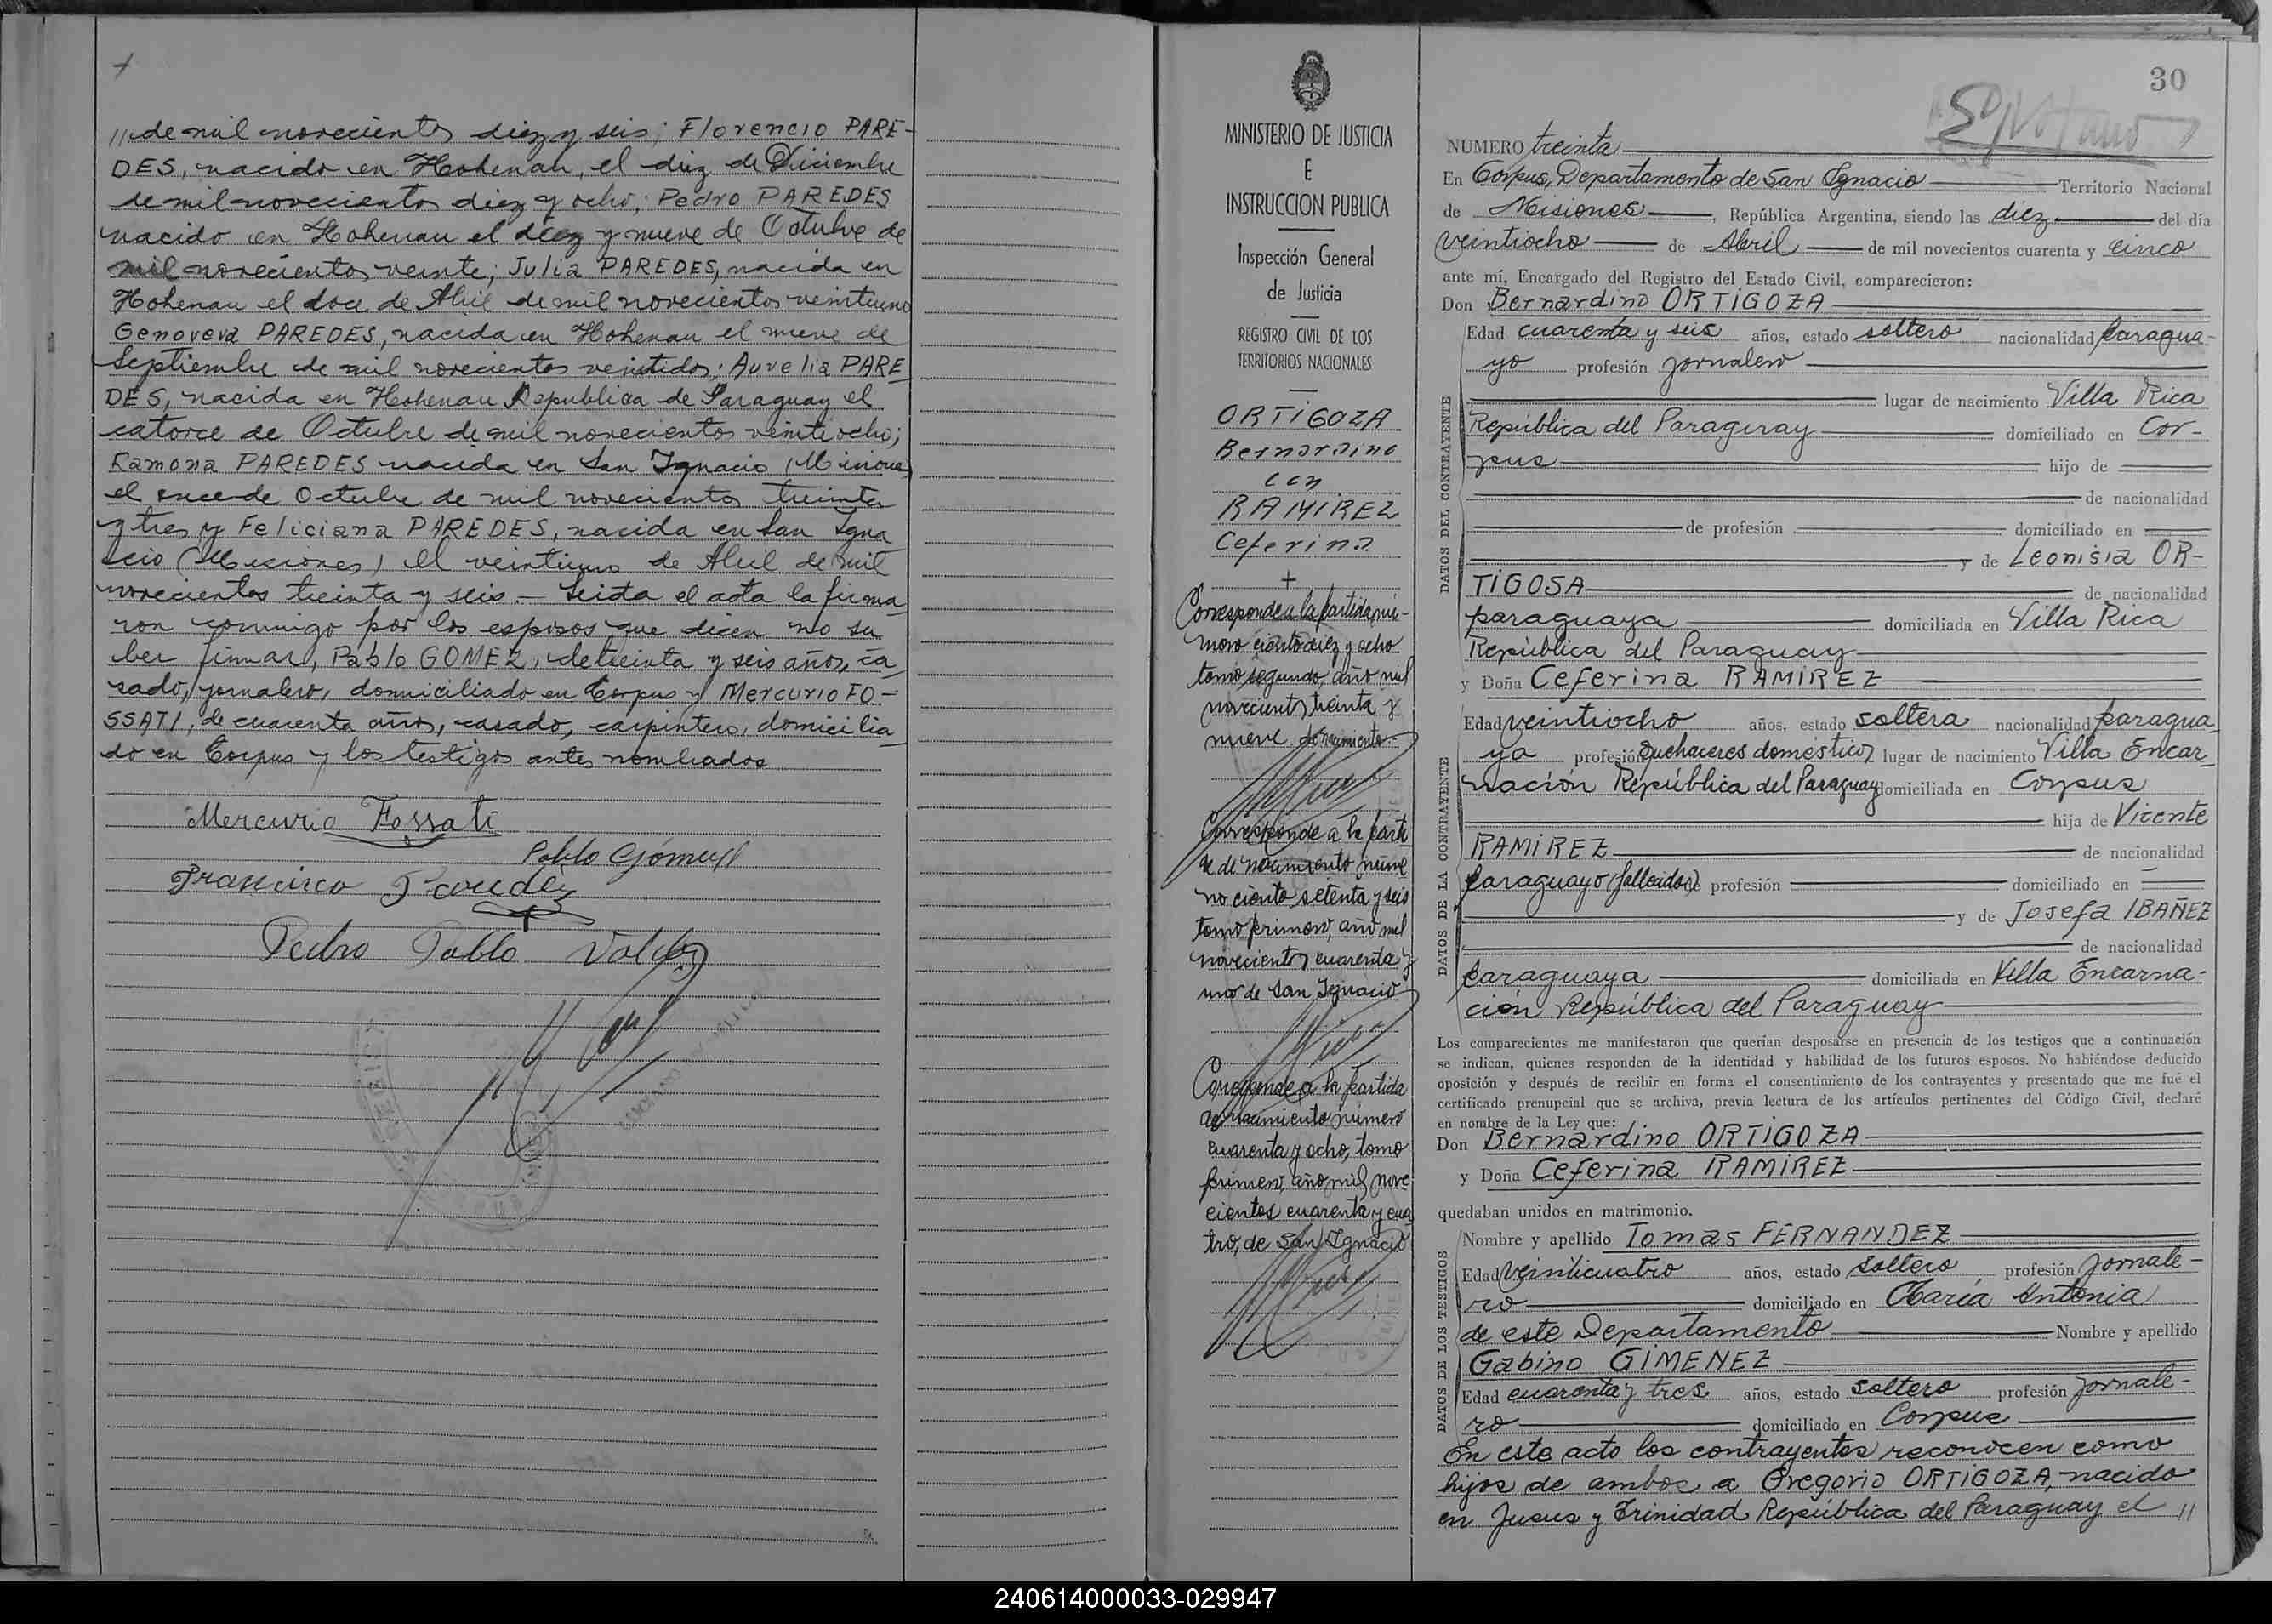 //de mil novecientos diez y seis; Florencio PARE-
DES, nacido en Hohenau, el diez de Diciembre
de mil novecientos diez y ocho; Pedro PAREDES
nacido en Hohenau el diez y nueve de Octubre de
mil novecientos veinte; Julia PAREDES, nacida en
Hohenau el doce de Abril de mil novecientos veintiuno
Genoveva PAREDES, nacida en Hohenau el nueve de
Septiembre de mil novecientos veintidos; Aurelia PARE
DES, nacida en Hohenau Republica de Paraguay el
catorce de Octubre de mil novecientos veinteocho;
Ramona PAREDES nacida en San Ignacio (Misiones)
el once de Octubre de mil novecientos treinta
y tres y Feliciana PAREDES, nacida en San Igna
cio (Misiones) el veintiuno de Abril de mil
novecientos treinta y seis.- Leida el acta la firma
ron conmigo por los esposos que dicen no sa
ber firmar, Pablo GOMEZ, de treinta y seis años, ca
sado, jornalero, domiciliado en Corpus y Mercurio FO-
SSATI, de cuarenta años, casado, carpintero, domicilia
do en Corpus y los testigos antes nombrados
Mercurio Fossati
Pablo Gómez
Francisco
Pedro Pablo Valdez
MINISTERIO DE JUSTICIA
E
INSTRUCCION PUBLICA
Inspección General
de Justicia
REGISTRO CIVIL DE LOS
TERRITORIOS NACIONALES
ORTIGOZA
Bernardino
con
RAMIREZ
Ceferina
+
Corresponde a la partida nú-
mero ciento diez y ocho
tomo segundo, año mil
novecientos treinta y
nueve de nacimiento
Corresponde a la parti
da de nacimiento núme
ro ciento setenta y seis
tomo primero, año mil
novecientos cuarenta y
uno de San Ignacio
Corresponde a la partida
de nacimiento número
cuarenta y ocho, tomo
primero, año mil nove
cientos cuarenta y cua
tro, de San Ignacio
30
NUMERO treinta
En Corpus, Departamento de San Ignacio Territorio Nacional
de Misiones, República Argentina, siendo las diez del día
veintiocho de Abril de mil novecientos cuarenta y cinco
ante mí, Encargado del Registro del Estado Civil, comparecieron:
Don Bernardino ORTIGOZA
DATOS DEL CONTRAYENTE
Edad cuarenta y seis años, estado soltero nacionalidad paragua-
yo profesión jornalero
lugar de nacimiento Villa Rica
República del Paraguay domiciliado en Cor-
pus hijo de
de nacionalidad
de profesión domiciliado en
y de Leonisia OR-
TIGOSA de nacionalidad
paraguaya domiciliada en Villa Rica
República del Paraguay
y Doña Ceferina RAMIREZ
DATOS DE LA CONTRAYENTE
Edad veintiocho años, estado soltera nacionalidad paragua
ya profesión quehaceres domésticos lugar de nacimiento Villa Encar
nación República del Paraguay domiciliada en Corpus
hija de Vicente
RAMIREZ de nacionalidad
paraguayo (fallecido) de profesión domiciliado en
y de Josefa IBAÑEZ
de nacionalidad
paraguaya domiciliada en Villa Encarna-
ción República del Paraguay
Los comparecientes me manifestaron que querían desposarse en presencia de los testigos que a continuación
se indican, quienes responden de la identidad y habilidad de los futuros esposos. No habiéndose deducido
oposición y después de recibir en forma el consentimiento de los contrayentes y presentado que me fué el
certificado prenupcial que se archiva, previa lectura de los artículos pertinentes del Código Civil, declaré
en nombre de la Ley que:
Don Bernardino ORTIGOZA
y Doña Ceferina RAMIREZ
quedaban unidos en matrimonio.
DATOS DE LOS TESTIGOS
Nombre y apellido Tomas FERNANDEZ
Edad veinticuatro años, estado soltero profesión jornale-
ro domiciliado en María Antonia
de este Departamento Nombre y apellido
Gabino GIMENEZ
Edad cuarenta y tres años, estado soltero profesión jornale-
ro domiciliado en Corpus
En este acto los contrayentes reconocen como
hijos de ambos a Gregorio ORTIGOZA, nacido
en Jesus y Trinidad República del Paraguay el //
240614000033-029947